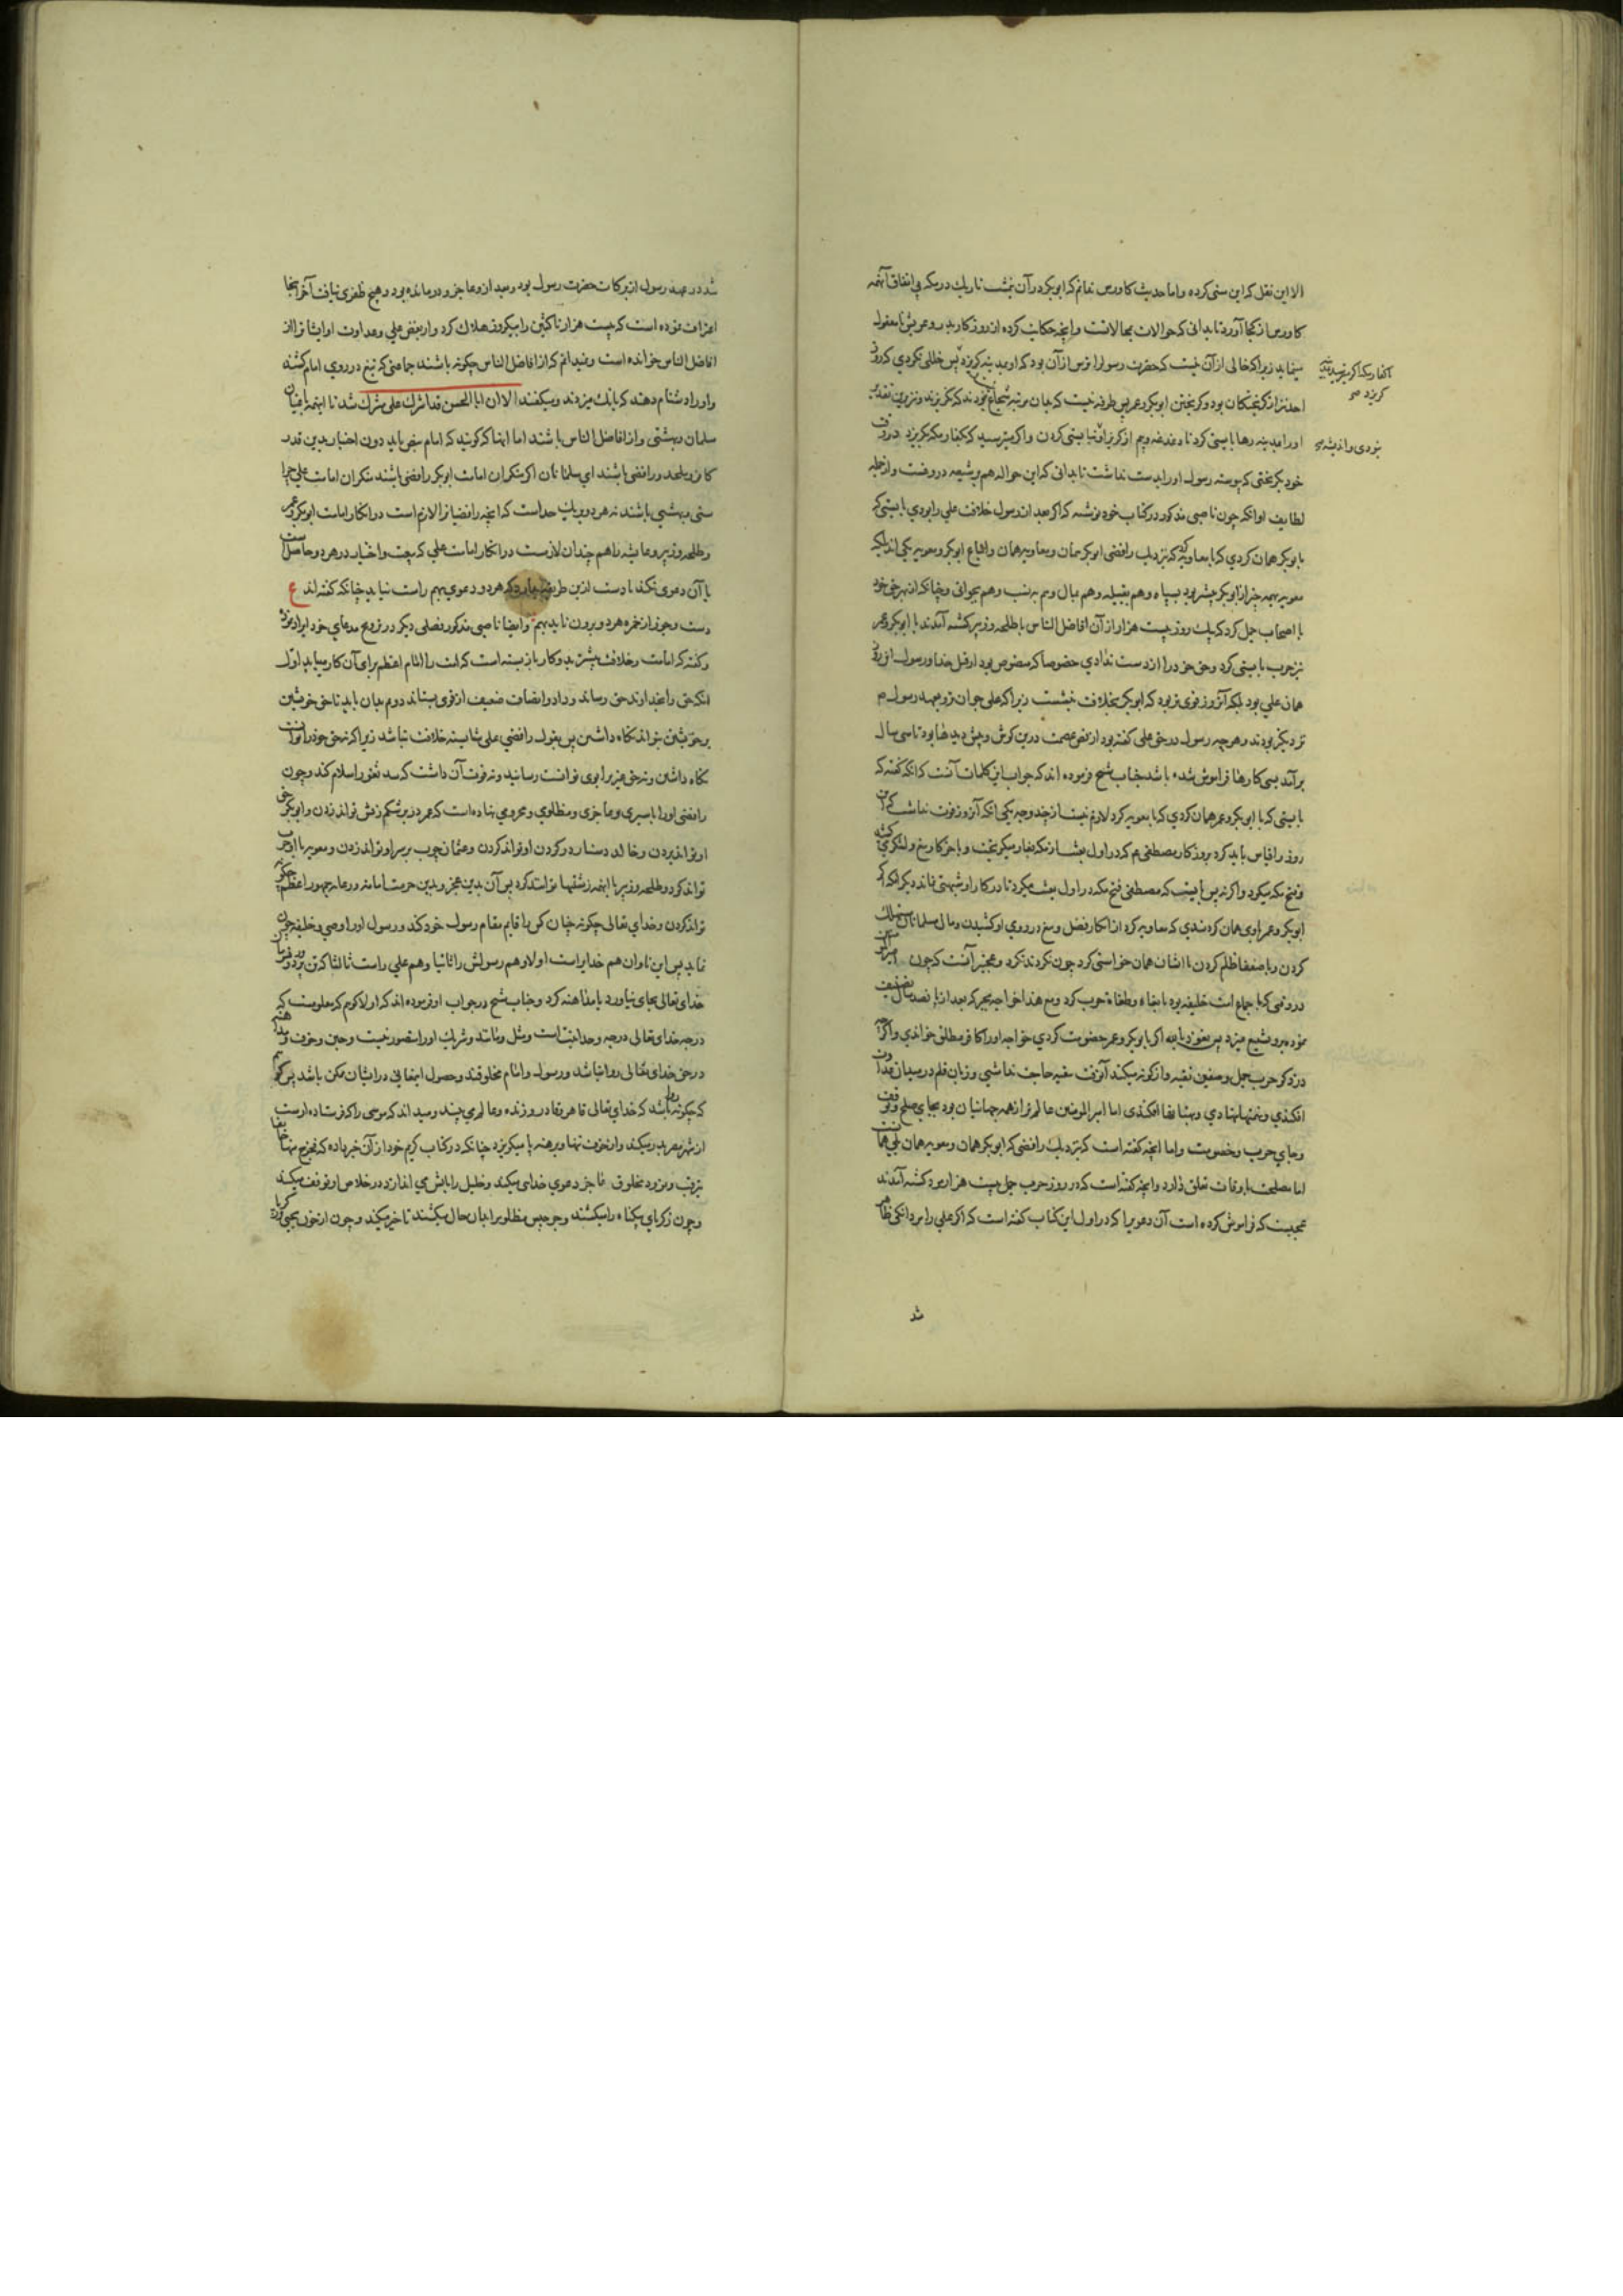 الا این نقل که این سنی کرده و اما حدیث کاورس ندانم که ابوبکر در آن نبشت تاریك در مکه بی اتفاق آنهمه
کاورس از کجا آورد تا بدانی که حوالات محالاتست و آنچه حکایت کرده از روز کار بدر و عریش نامعقول
مینماید زیرا که خالی از آن نیست که حضرت رسول را ترس از آن بود که او بمدینه گریزد پس خللی نکردی که روز
احد نیز از گریختگان بود و گریختن ابوبکر و عمر بس طرفه نیست که جان مرتبه شجاع نبودند که نگریزند و نیز برین تقدیر
او را مدینه رها بایستی کرد تا دغدغه وهم از گریز او نبایستی کردن و اگر میترسید که بکفار مکه گریزد در وقت
خود بگریختی که پیوسته رسول او را بدست نداشت تا بدانی که این حواله هم بر شیعه دروغست و از جمله
لطایف او آنکه چون ناصبی مذکور در کتاب خود نوشته که اگر بعد از رسول خلافت علی را بودی بایستی که
با ابوبکر همان کردی که با معاویه که نزدیك رافضی ابوبکر همان و معاویه همان و اتباع ابوبکر و معویه یکی اند بلکه
معویه بهمه چیز از ابوبکر بیشتر بود بسپاه و هم بقبیله و هم بمال و هم به نسب و هم بجوانی و چنانکه از بهر حق خود
با اصحاب جمل کرد که بیك روز بیست هزار از آن افاضل الناس با طلحه و زبیر کشته آمدند با ابوبکر و عمر
نیز حرب بایستی کرد و حق خود را از دست ندادی خصوصا که منصوص بود از قبل خدا و رسول آن روز
همان علی بود بلکه آنروز قوی تر بود که ابوبکر بخلافت بنشست زیرا که علی جوان تر و بعهد رسول م
نزدیکتر بودند و هر چه رسول در حق علی گفته بود از نص عصمت درین گوش و پیش دیدها بود تا سی سال
برآمد بسی کارها فراموش شده باشد جناب شیخ فرموده اند که جواب این کلمات آنست که آنکه گفته که
بایستی که با ابوبکر و عمر همان کردی که با معویه کرد لازم نیست از چند وجه یکی آنکه آنروز قوت نداشت که این
روز را قیاس باید کرد بروز کار مصطفی م که در اول بعثت از مکه بغار میگریخت و باخر کار تیغ و لشکر می
و فتح مکه میکرد و اگر نه بس بایست که مصطفی فتح مکه در اول بعثت میکرد تا در کار او شبهتی نماند دیگر آنکه اگر
ابوبکر و عمر با وی همان کردندی که معاویه کرد از انکار فضل و تیغ در روی او کشیدن و مال مسلمانان
کردن و با ضعفا ظلم کردن با ایشان همان خواستی کرد چون نکردند نکرد و عجیبتر آنست که چون امیرالمؤمنین
در روزی که باجماع امت خلیفه بود با بغاة و طغاة حرب کرد و مع هذا خواجه مجبر که بعد از
نموده بر و تشنیع میزد پس نعوذ بالله اگر با ابوبکر و عمر خصومت کردی خواجه او را کافر مطلق خواندی و اگر چه
در ذکر حرب جمل و صفین تقیه و از گونه میکند آنوقت بتقیه حاجت نداشتی و زبان قلم در میان
افکندی و تهمتها نهادی و بهتانها افکندی اما امیرالمؤمنین عالم تر از همه جهانیان بود بجای صلح و توقف
و بجای حرب و خصومت و اما آنچه گفته است که نزدیك رافضی که ابوبکر همان و معویه همان
اما مصلحت باوقات تعلق دارد و آنچه گفته است که در روز حرب جمل بیست هزار مرد کشته آمدند
عجبست که فراموش کرده است آن دعویرا که در اول این کتاب گفته است که اگر علی را مردانگی ظاهر
کفار مکه اگر میترسید
گریزد صح
نبودی و اندیشه
شد
شد در عهد رسول از برکات حضرت رسول بود و بعد از او عاجز و درمانده بود و هیچ ظفری نیافت آخر اینجا
اعتراف نموده است که بیست هزار ناکثین را بیکروز هلاك کرد و از بغض علی و عداوت او ایشانرا از
افاضل الناس خوانده است و نمیدانم که از افاضل الناس چگونه باشند جماعتی که تیغ در روی امام کشند
و او را دشنام دهند که بانگ میزدند و میگفتند الا ان ابا الحسن قد اشرك علی مشرك شد تا اینهمه باغیان
مسلمان و بهشتی و از افاضل الناس باشند اما اینها که گویند که امام نص باید دون اختیار بدین قدر
کافر و ملحد و رافضی باشند ای مسلمانان اگر منکران امامت ابوبکر رافضی باشند منکران امامت علی چرا
سنی و بهشتی باشند نه هر دو بیك حد است که آنچه رافضیانرا لازم است در انکار امامت ابوبکر و عمر
و طلحه و زبیر و عایشه را هم چندان لازمست در انکار امامت علی که بیعت و اختیار در هر دو حاصلست
یا آن دعوی نکند یا دست ازین طریقه بدارد که هر دو دعوی بهم راست نیاید چنانکه گفته اند ع
دست و جوز از خمره هر دو برون ناید بهم و ایضا ناصبی مذکور فصلی دیگر در ترویج مدعای خود ایراد نموده
و گفته که امامت و خلافت بیشتر بدو کار باز بسته است که امت را امام اعظم برای آن کار میباید اول
آنکه حق را بخداوند حق رساند و داد و انصاف ضعیف از قوی بستاند دوم چنان باید تا حق خویشتن
بر خویشتن تواند نگاه داشتن پس بقول رافضی علی شایسته خلافت نباشد زیرا که نه حق خود را توانست
نگاه داشتن و نه حق غیر برا بوی توانست رسانید و نه قوت آن داشت که سد ثغور اسلام کند و چون
رافضی او را باسیری و عاجزی و مظلومی و محرومی بنهاده است که عمر در بر شکم زنش تواند زدن و ابوبکر حق
او تواند بردن و خالد دستار در گردن او تواند کردن و عثمان چوب بر سر او تواند زدن و معویه با او حرب
تواند کرد و طلحه و زبیر با اینهمه زشتیها توانستند کرد پس آن بدین عجز و بدین حرمت امامت و رعایه جمهور اعظم چگونه
تواند کردن و خدای تعالی چگونه چنان کس را قایم مقام رسول خود کند و رسول او را وصی و خلیفه چون
نماید پس این تاوان هم خدایراست اولا و هم رسولش را ثانیا و هم علی راست ثالثا که تن بزد و فرمان
خدای تعالی بجای نیاورد یا مداهنه کرد و جناب شیخ در جواب او فرموده اند که اولا گویم که معلومست که
درجه خدای تعالی درجه وحدانیتست و مثل و مانند و شریك او را متصور نیست و جبن و خوف و مداهنه
در حق خدای تعالی روا نباشد و رسول و امام مخلوقند و حصول اینمعانی در ایشان ممکن باشد پس گویم
که چگونه روا باشد که خدای تعالی قاهر و قادر و زنده و عالم می بیند و میداند که موسی را که فرستاده اوست
از شهر مصر بدر میکند و از خوف تنها و برهنه پا میگریزد چنانکه در کتاب کریم خود از آن خبر داده که فخرج منها خایفا
یترقب و نمرود مخلوق عاجز دعوی خدایی میکند و خلیل را بآتش می اندازد در خلاص او توقف میکند
و چون زکریای بیگناه را میکشند و جرجیس مظلوم را بدان حال میکشند تاخیر میکند و چون از خون یحیی